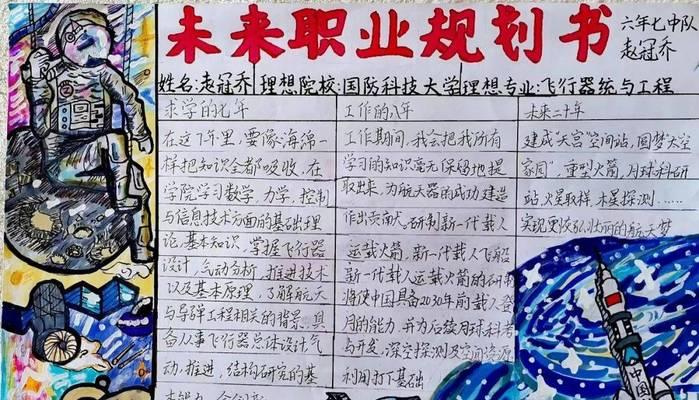 未来职业规划书
六年七中队
赵冠乔
姓名:赵冠乔 理想院校:国防科技大学 理想专业:飞行器统与工程
求学的七年
在这7年里,要像海绵一
样把知识全都吸收,在
学院学习数学,力学,控制
与信息技术方面的基础理
论,基本知识,掌握飞行器
设计,气动分析,推进技术
以及基本原理,了解航天
与导弹工程相关的背景,具
备从事飞行器总体设计气
动,推进,结构研究的基
工作的八年
工作期间,我会把我所有
学习的知识毫无保留地提
取出来,为航天器的成功建造
作出贡献。研制新一代载人
运载火箭,新一代载人飞船
新一代载人运载火箭的研制
将使中国具备2030年前载人登
月的能力,并为后续月球科考
与开发,深空探测及空间资源
利用打下基础
未来二十年
建成"天宫"空间站,圆梦"太空
家园",重型火箭,月球科研
站,火星取样,木星探测……
实现更恢弘壮丽的航天梦
中国